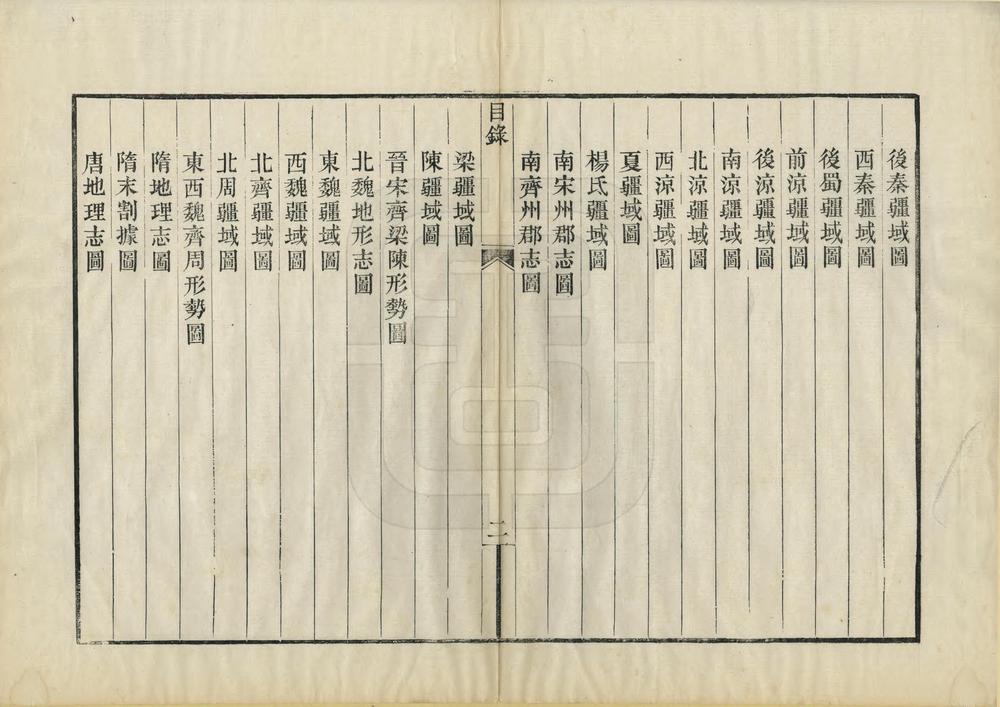 後秦疆域圖
西秦疆域圖
後蜀疆域圖
前涼疆域圖
後涼疆域圖
南涼疆域圖
北涼疆域圖
西涼疆域圖
夏疆域圖
楊氏疆域圖
南宋州郡志圖
南齊州郡志圖
目錄
二
梁疆域圖
陳疆域圖
晉宋齊梁陳形勢圖
北魏地形志圖
東魏疆域圖
西魏疆域圖
北齊疆域圖
北周疆域圖
東西魏齊周形勢圖
隋地理志圖
隋末割據圖
唐地理志圖